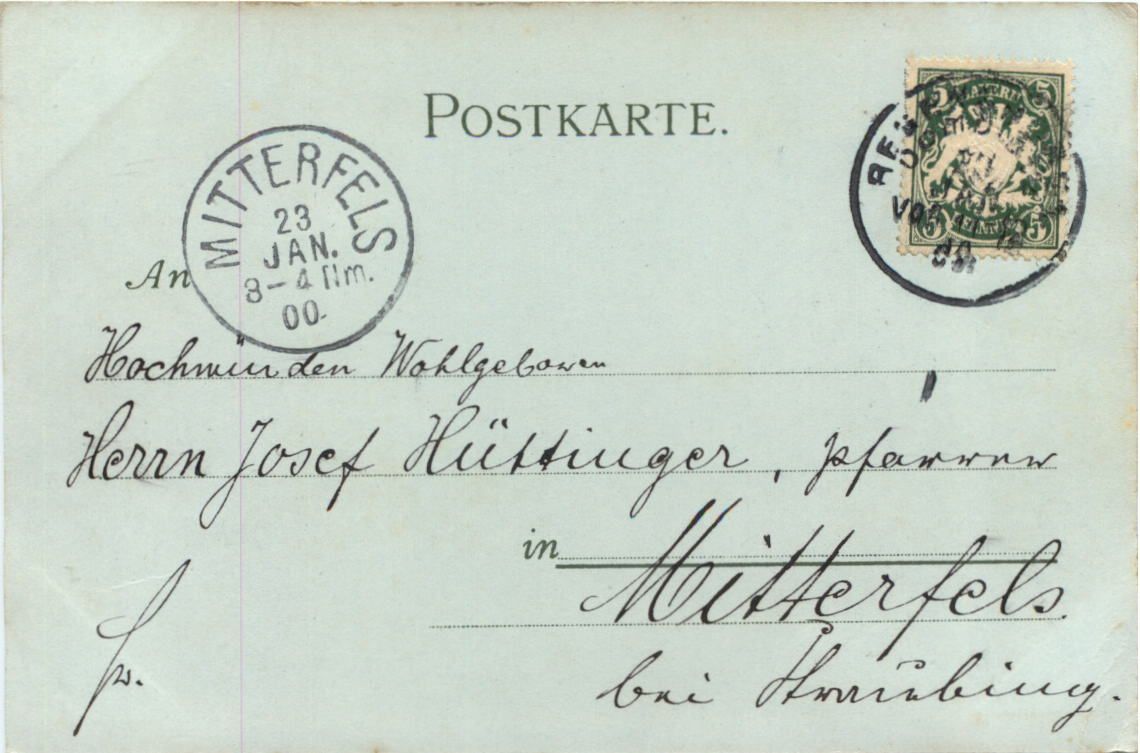 POSTKARTE.
5 BAYERN 5
MITTERFELS
23
JAN.
3-4 Nm.
00.
VOR
An
Hochwürden Wohlgeboren
Herrn Josef Hüttinger, Pfarrer
in Mitterfels
bei Straubing.
fr.